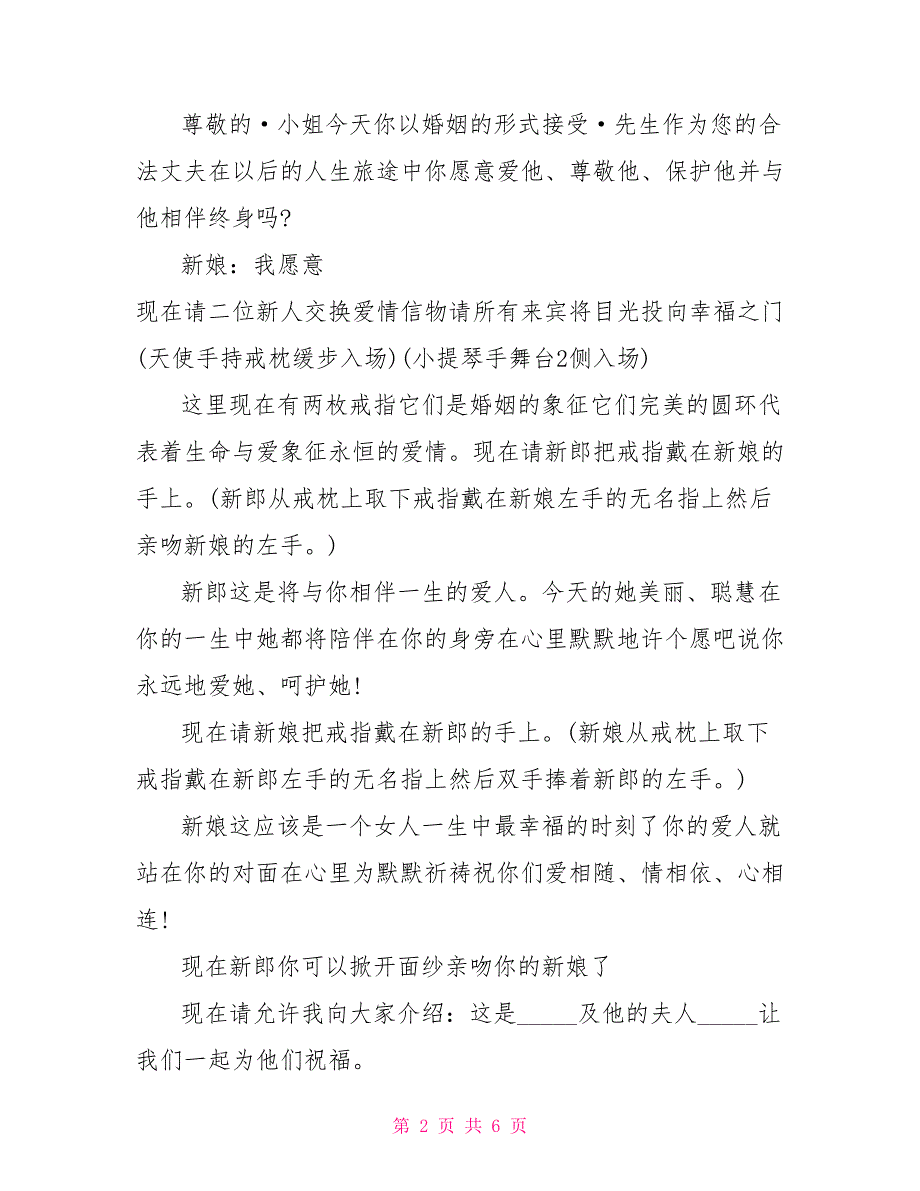 尊敬的·小姐今天你以婚姻的形式接受·先生作为您的合
法丈夫在以后的人生旅途中你愿意爱他、尊敬他、保护他并与
他相伴终身吗?
新娘：我愿意
现在请二位新人交换爱情信物请所有来宾将目光投向幸福之门
(天使手持戒枕缓步入场)(小提琴手舞台2侧入场)
这里现在有两枚戒指它们是婚姻的象征它们完美的圆环代
表着生命与爱象征永恒的爱情。现在请新郎把戒指戴在新娘的
手上。(新郎从戒枕上取下戒指戴在新娘左手的无名指上然后
亲吻新娘的左手。)
新郎这是将与你相伴一生的爱人。今天的她美丽、聪慧在
你的一生中她都将陪伴在你的身旁在心里默默地许个愿吧说你
永远地爱她、呵护她!
现在请新娘把戒指戴在新郎的手上。(新娘从戒枕上取下
戒指戴在新郎左手的无名指上然后双手捧着新郎的左手。)
新娘这应该是一个女人一生中最幸福的时刻了你的爱人就
站在你的对面在心里为默默祈祷祝你们爱相随、情相依、心相
连!
现在新郎你可以掀开面纱亲吻你的新娘了
现在请允许我向大家介绍：这是_____及他的夫人_____让
我们一起为他们祝福。
第 2 页 共 6 页